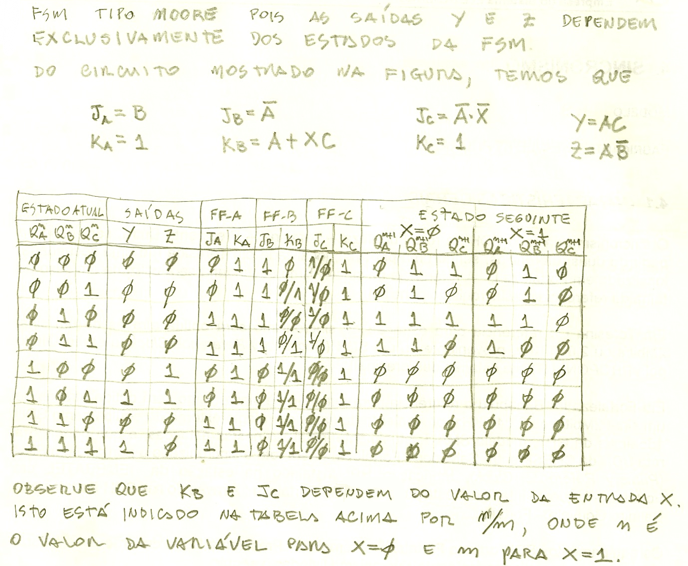 FSM TIPO MOORE POIS AS SAÍDAS Y E Z DEPENDEM
EXCLUSIVAMENTE DOS ESTADOS DA FSM.
DO CIRCUITO MOSTRADO NA FIGURA, TEMOS QUE
J_A = B J_B = A̅ J_C = A̅·X̅ Y = AC
K_A = 1 K_B = A + XC K_C = 1 Z = AB̅
ESTADO ATUAL SAÍDAS FF-A FF-B FF-C ESTADO SEGUINTE
X=Ø X=1
Q_A^n Q_B^n Q_C^n Y Z J_A K_A J_B K_B J_C K_C Q_A^{n+1} Q_B^{n+1} Q_C^{n+1} Q_A^{n+1} Q_B^{n+1} Q_C^{n+1}
Ø Ø Ø Ø Ø Ø 1 1 Ø 1/Ø 1 Ø 1 1 Ø 1 Ø
Ø Ø 1 Ø Ø Ø 1 1 Ø/1 1/Ø 1 Ø 1 Ø Ø 1 Ø
Ø 1 Ø Ø Ø 1 1 1 Ø/Ø 1/Ø 1 1 1 1 1 1 Ø
Ø 1 1 Ø Ø 1 1 1 Ø/1 1/Ø 1 1 1 Ø 1 Ø Ø
1 Ø Ø Ø 1 Ø 1 Ø 1/1 Ø/Ø 1 Ø Ø Ø Ø Ø Ø
1 Ø 1 1 1 Ø 1 Ø 1/1 Ø/Ø 1 Ø Ø Ø Ø Ø Ø
1 1 Ø Ø Ø 1 1 Ø 1/1 Ø/Ø 1 Ø Ø Ø Ø Ø Ø
1 1 1 1 Ø 1 1 Ø 1/1 Ø/Ø 1 Ø Ø Ø Ø Ø Ø
OBSERVE QUE K_B E J_C DEPENDEM DO VALOR DA ENTRADA X.
ISTO ESTÁ INDICADO NA TABELA ACIMA POR n/m, ONDE n É
O VALOR DA VARIÁVEL PARA X=Ø E m PARA X=1.